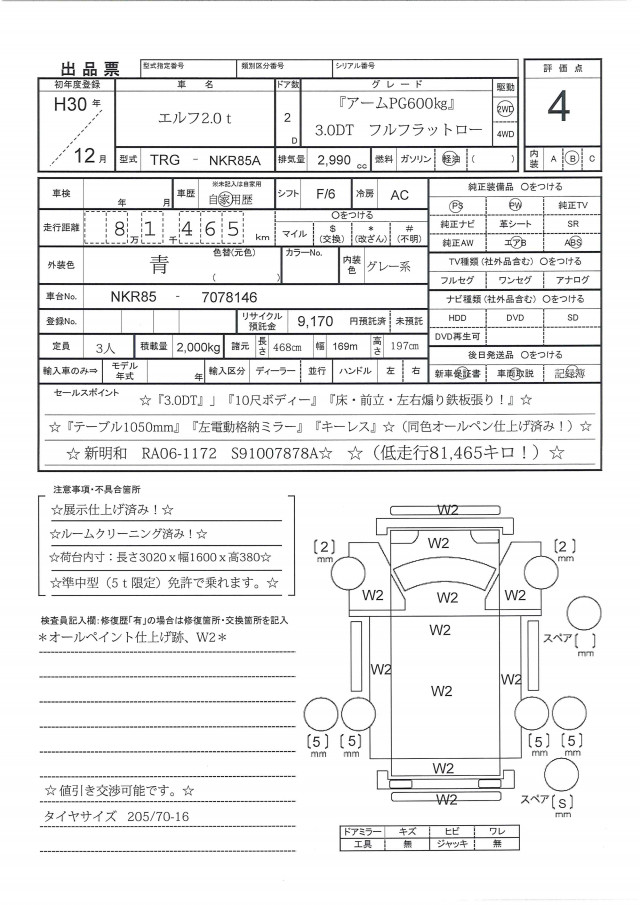 出品票 型式指定番号 類別区分番号 シリアル番号
初年度登録 車 名 ドア数 グレード 駆動 評価点
H30年 12月 エルフ2.0ｔ 2D 『アームPG600kg』 2WD 4
3.0DT フルフラットロー 4WD
型式 TRG - NKR85A 排気量 2,990 cc 燃料 ガソリン 軽油 ( ) 内装 A B C
車検 年 月 車歴 ※未記入は自家用 自家用歴 シフト F/6 冷房 AC 純正装備品 〇をつける
PS PW 純正TV
走行距離 8万1千465 km 〇をつける マイル $(交換) *(改ざん) #(不明) 純正ナビ 革シート SR
純正AW エアB ABS
外装色 青 色替(元色) ( ) カラーNo. 内装色 グレー系 TV種類(社外品含む) 〇をつける
フルセグ ワンセグ アナログ
車台No. NKR85 - 7078146 ナビ種類(社外品含む) 〇をつける
登録No. リサイクル預託金 9,170 円預託済 未預託 HDD DVD SD
DVD再生可
定員 3人 積載量 2,000kg 諸元 長さ 468cm 幅 169m 高さ 197cm 後日発送品 〇をつける
輸入車のみ⇒ モデル年式 年 輸入区分 ディーラー 並行 ハンドル 左 右 新車保証書 車両取説 記録簿
セールスポイント ☆『3.0DT』』『10尺ボディー』『床・前立・左右煽り鉄板張り！』☆
☆『テーブル1050mm』『左電動格納ミラー』『キーレス』☆（同色オールペン仕上げ済み！）☆
☆ 新明和 RA06-1172 S91007878A☆ ☆（低走行81,465キロ！）☆
注意事項・不具合箇所
☆展示仕上げ済み！☆
☆ルームクリーニング済み！☆
☆荷台内寸：長さ3020ｘ幅1600ｘ高380☆
☆準中型（5ｔ限定）免許で乗れます。☆
検査員記入欄：修復歴「有」の場合は修復箇所・交換箇所を記入
＊オールペイント仕上げ跡、W2＊
☆値引き交渉可能です。☆
タイヤサイズ 205/70-16
W2
〔2〕mm W2 〔2〕mm
W2 W2
W2 スペア〔 〕mm
W2 W2 W2
〔5〕mm 〔5〕mm 〔5〕mm 〔5〕mm
W2
W2 スペア〔S〕mm
ドアミラー キズ ヒビ ワレ
工具 無 ジャッキ 無